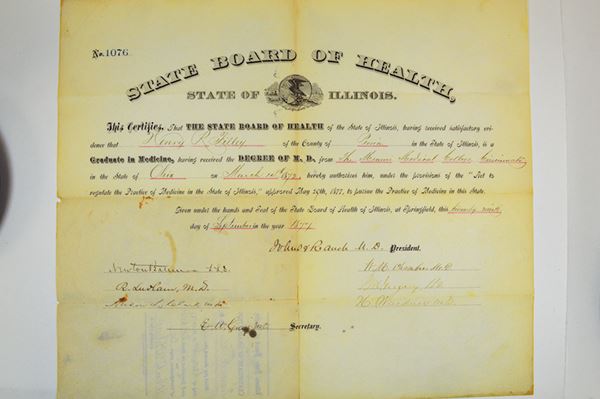 No. 1076
STATE BOARD OF HEALTH,
STATE OF ILLINOIS.
This Certifies, That THE STATE BOARD OF HEALTH of the State of Illinois, having received satisfactory evi-
dence that Henry R. of the County of in the State of Illinois, is a
Graduate in Medicine, having received the DEGREE OF M. D. from The Miami Medical College Cincinnati
in the State of Ohio on March 1872, hereby authorizes him, under the provisions of the "Act to
regulate the Practice of Medicine in the State of Illinois," approved May 29th, 1877, to pursue the Practice of Medicine in this State.
Given under the hands and Seal of the State Board of Health of Illinois, at Springfield, this twenty ninth
day of September in the year 1877
John H Rauch M. D. President.
Newton Bateman LL.D. W. M. Chambers M.D.
R. Ludlam, M.D. Gregory
H. Wardner M.D.
Secretary.